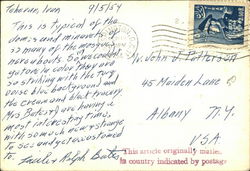 Teheran, Iran 9/5/54
This is typical of the
domes and minarets of
so many of the mosques
hereabouts. So wonderful
in color. They are
so striking with the turq-
uoise blue background and
the cream and black tracery.
Mrs Bates and I are having a
most interesting time,
with so much new & strange
to see and get accustomed
to. Lucile & Ralph Bates
Mr. John J. Patterson
45 Maiden Lane
Albany N.Y.
USA
This article originally mailed
in country indicated by postage